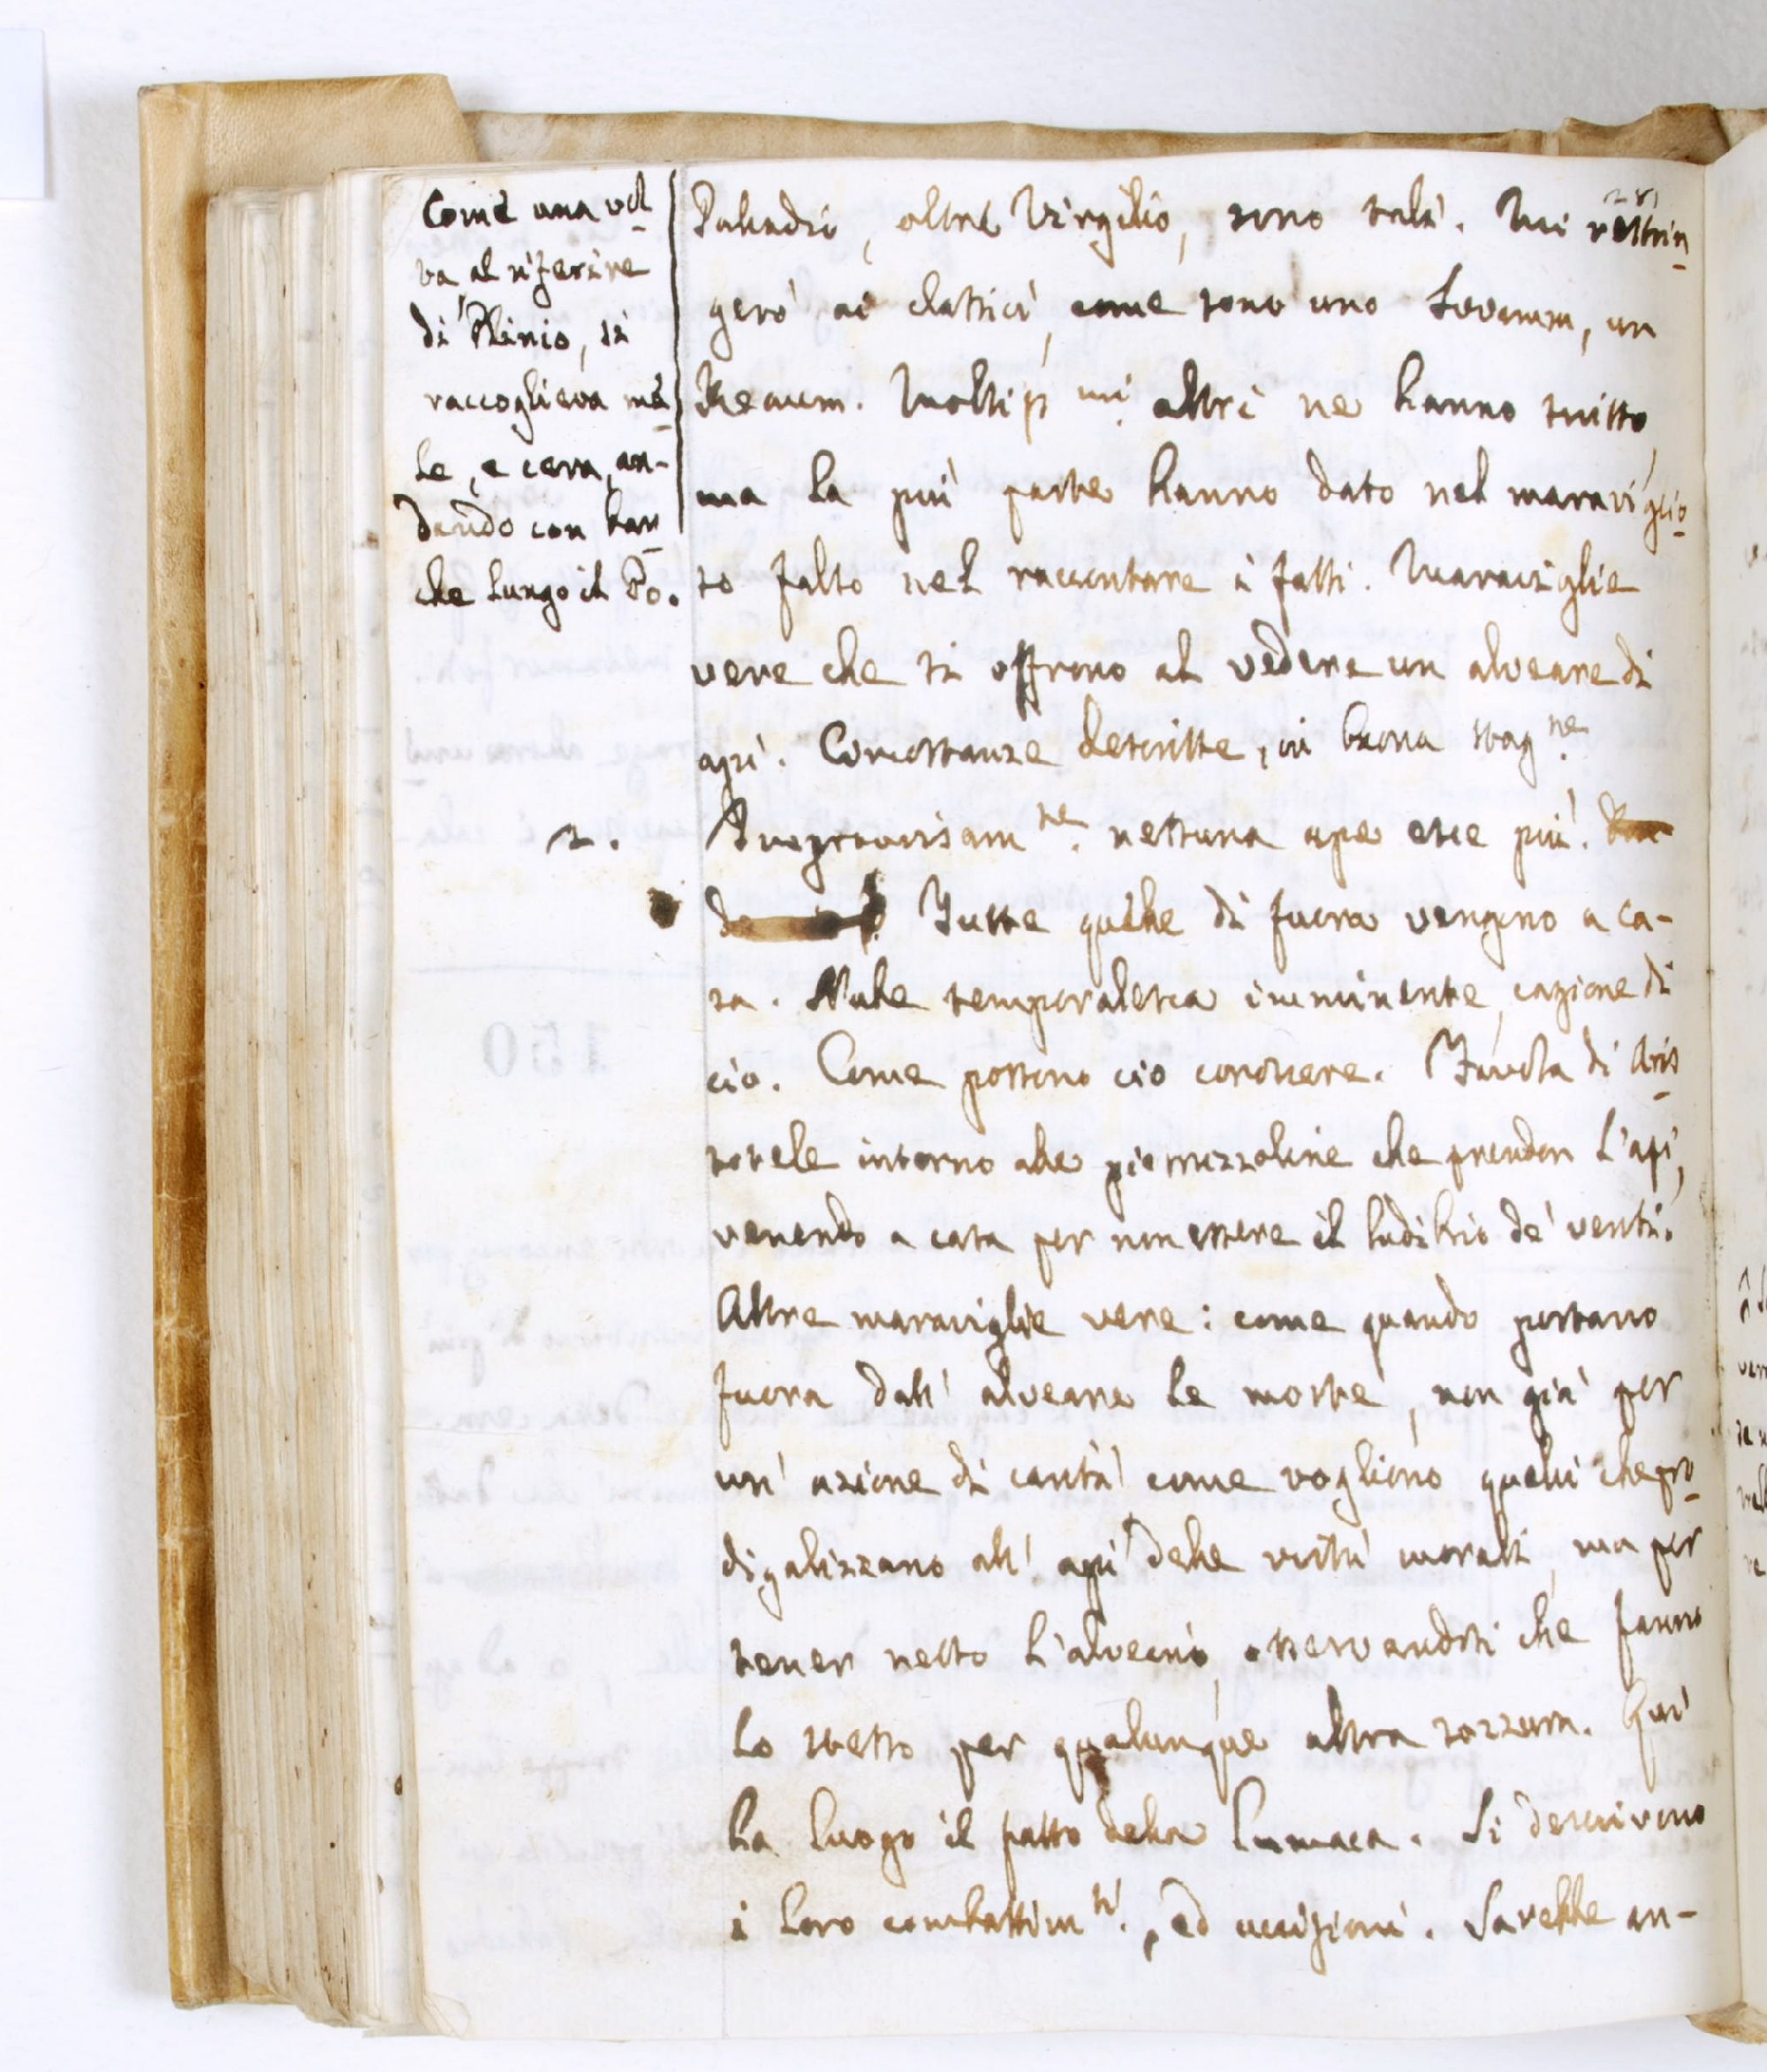 Come una vol-
ta al riferire
di Plinio, si
raccoglieva me-
le, e cera, an-
dando con bar-
che lungo il Po.
281
Palladio, oltre Virgilio, sono tali. Mi restrin-
gerò ai classici, come sono uno Svvamm, un
Reaum. Moltiss.mi altri ne hanno scritto,
ma la più parte hanno dato nel maraviglio-
so falso nel raccontare i fatti. Maraviglie
vere che si offrono al vedere un alveare di
api. Circostanze descritte, in buona stag.ne
2. Improvvisam.te nessuna ape esce più.
Tutte quelle di fuora vengono a ca-
sa. Nube temporalesca imminente, cagione di
ciò. Come possono ciò conoscere. Favola di Aris-
totele intorno alle pietruzzoline che prendon l'api,
venendo a casa per non essere il ludibrio de' venti.
Altre maraviglie vere: come quando portano
fuora dall' alveare le morte, non già per
un' azione di carità come vogliono quelli che pro-
digalizzano all' api delle virtù morali, ma per
tener netto l'alveario, osservandosi che fanno
lo stesso per qualunque altra sozzura. Quì
ha luogo il fatto della lumaca. Si descrivono
i loro combattim.ti, ed uccisioni. Sarebbe an-